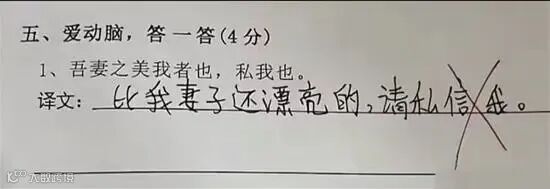 五、爱动脑，答一答(4分)
1、吾妻之美我者也，私我也。
译文：比我妻子还漂亮的，请私信我。
大数跨境